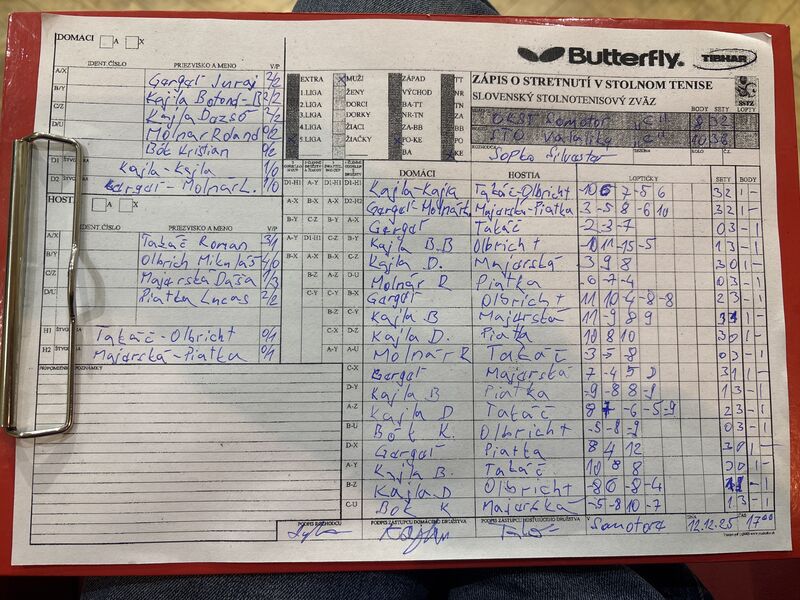 DOMACI A X
IDENT.ČÍSLO PRIEZVISKO A MENO V/P
A/X Gergeľ Juraj 2/2
B/Y Kajla Botond-B 2/2
C/Z Kajla Dezső
D/U Molnár Roland 0/2
Bót Kristian 0/2
D1 Kajla-Kajla 1/0
D2 Gergeľ-Molnár R. 1/0
HOSTIA A X
IDENT.ČÍSLO PRIEZVISKO A MENO V/P
A/X Takáč Roman 3/1
B/Y Olbrich Mikuláš 4/0
C/Z Majerská Daša 1/3
D/U Piatka Lucas 2/2
H1 Takáč-Olbricht 0/1
H2 Majerská-Piatka 0/1
PRIPOMIENKY POZNÁMKY
Butterfly
TIBHAR
EXTRA MUŽI ZÁPAD TT
1.LIGA ŽENY VÝCHOD NR
2.LIGA DORCI BA-TT ZA
3.LIGA DORKY NR-TN
4.LIGA ŽIACI ZA-BB BB
5.LIGA ŽIAČKY PO-KE PO
BA KE
ZÁPIS O STRETNUTÍ V STOLNOM TENISE
SLOVENSKÝ STOLNOTENISOVÝ ZVÄZ
SSTZ
BODY SETY LOPTY
OKST Komotor "C" 8 32
STO Valaliky "C" 10 38
Sopko Silvester
SEZÓNA KOLO Č.
DOMÁCI HOSTIA LOPTIČKY SETY BODY
D1-H1 Kajla-Kajla Takáč-Olbricht 3 2 1 -
D2-H2 Gergeľ-Molnár R Majerská-Piatka 3 -5 8 -6 10 3 2 1 -
A-X Gergeľ Takáč -2 -3 -7 0 3 - 1
B-Y Kajla B.B Olbricht -10 11 -15 -5 1 3 - 1
C-Z Kajla D. Majerská 3 9 8 3 0 1 -
D-U Molnár R Piatka -6 -7 -4 0 3 - 1
A-Y Gergeľ Olbricht 11 10 -4 -8 -8 2 3 - 1
B-Z Kajla B Majerská 11 -9 8 9 3 1 1 -
C-U Kajla D. Piatka 10 8 10 3 0 1 -
D-X Molnár R Takáč -3 -5 -8 0 3 - 1
A-Z Gergeľ Majerská 7 -4 5 0 3 1 1 -
B-U Kajla B Piatka -9 -8 8 -9 1 3 - 1
C-X Kajla D Takáč 2 3 - 1
D-Y Bót K. Olbricht -5 -8 -9 0 3 - 1
A-U Gergeľ Piatka 8 4 12 3 0 1 -
Kajla B. Takáč 10 8 8 3 0 1 -
Kajla D Olbricht -8 6 -8 -4
C-U Bót K Majerská -5 -8 10 -7 1 3 - 1
PODPIS ROZHODCU PODPIS ZÁSTUPCU DOMÁCEHO DRUŽSTVA PODPIS ZÁSTUPCU HOSŤUJÚCEHO DRUŽSTVA V Somotore DŇA 12.12.25 ČAS 17 00